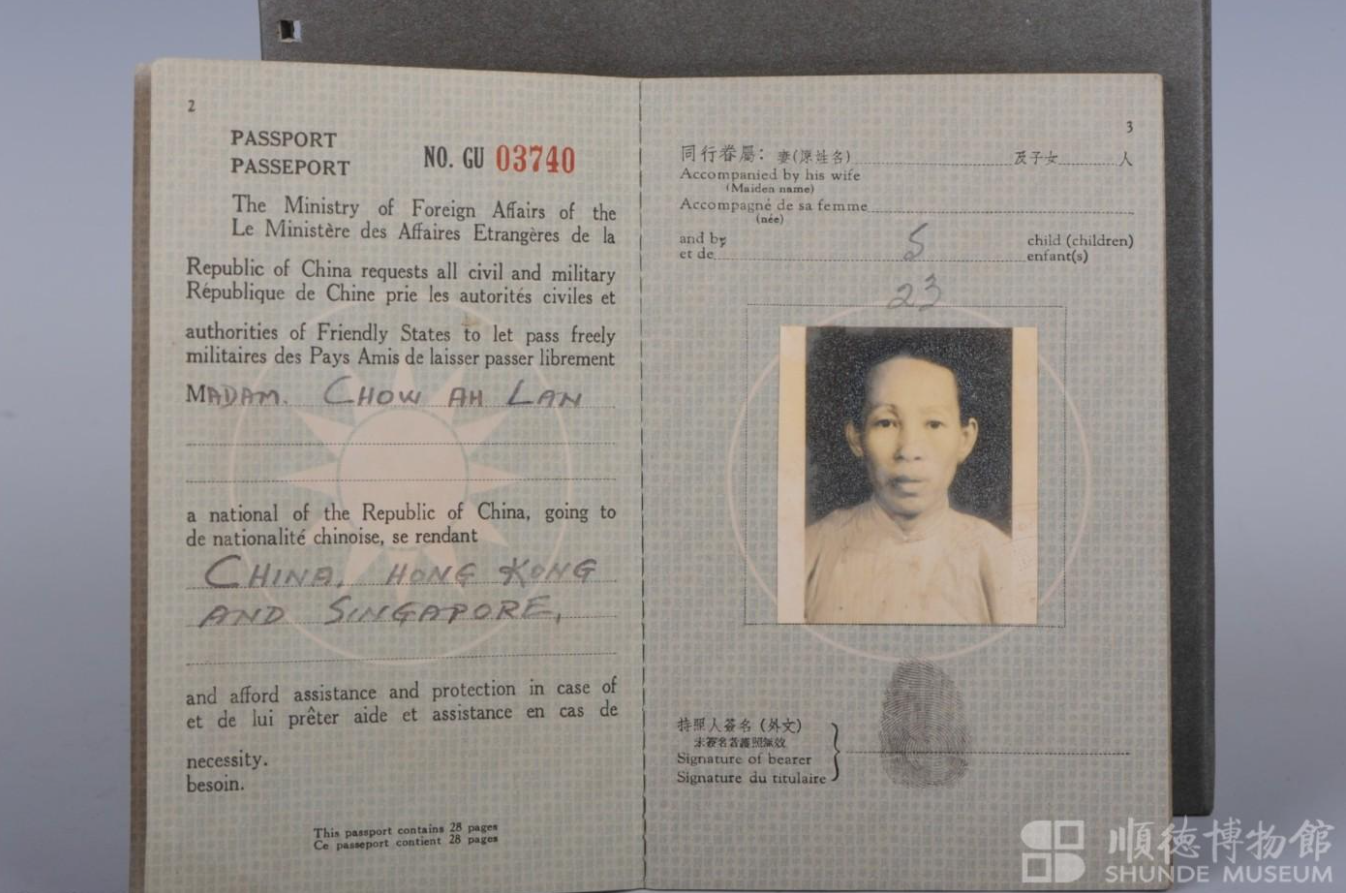 2
PASSPORT
PASSEPORT
NO. GU 03740
The Ministry of Foreign Affairs of the
Le Ministère des Affaires Etrangères de la
Republic of China requests all civil and military
République de Chine prie les autorités civiles et
authorities of Friendly States to let pass freely
militaires des Pays Amis de laisser passer librement
MADAM. CHOW AH LAN
a national of the Republic of China, going to
de nationalité chinoise, se rendant
CHINA, HONG KONG
AND SINGAPORE,
and afford assistance and protection in case of
et de lui prêter aide et assistance en cas de
necessity.
besoin.
This passport contains 28 pages
Ce passeport contient 28 pages
3
同行眷屬：妻(原姓名) 及子女 人
Accompanied by his wife
(Maiden name)
Accompagné de sa femme
(née)
and by child (children)
et de enfant(s)
23
持照人簽名 (外文)
未簽名者護照無效
Signature of bearer
Signature du titulaire
順德博物館
SHUNDE MUSEUM